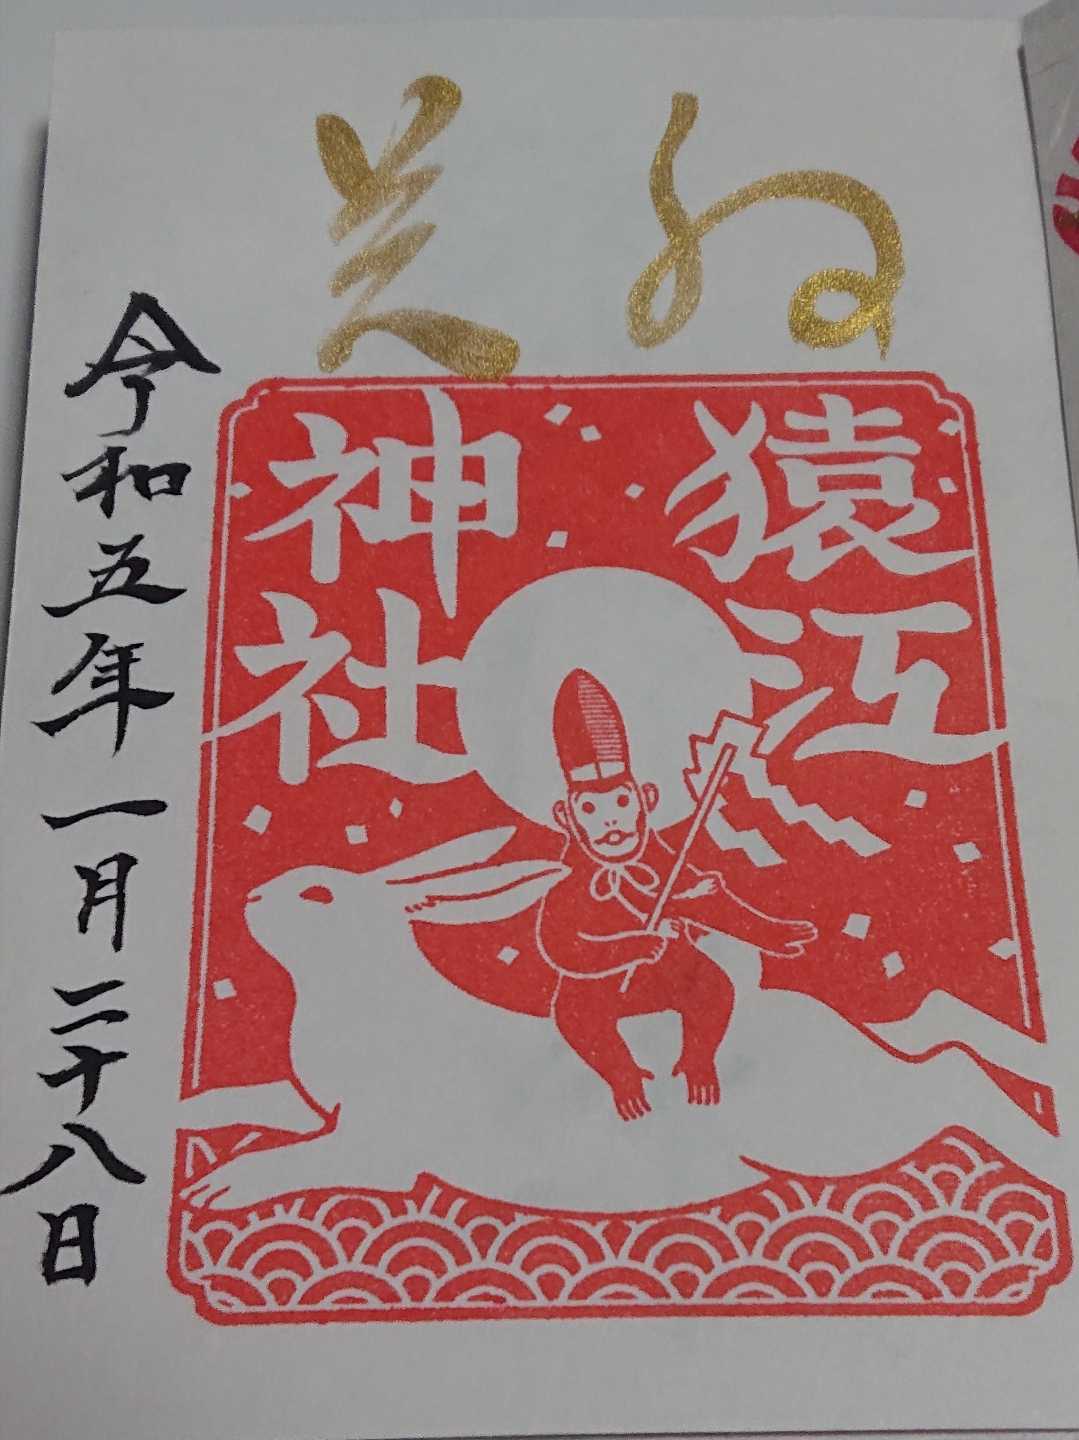 猿江
神社
令和五年一月二十八日